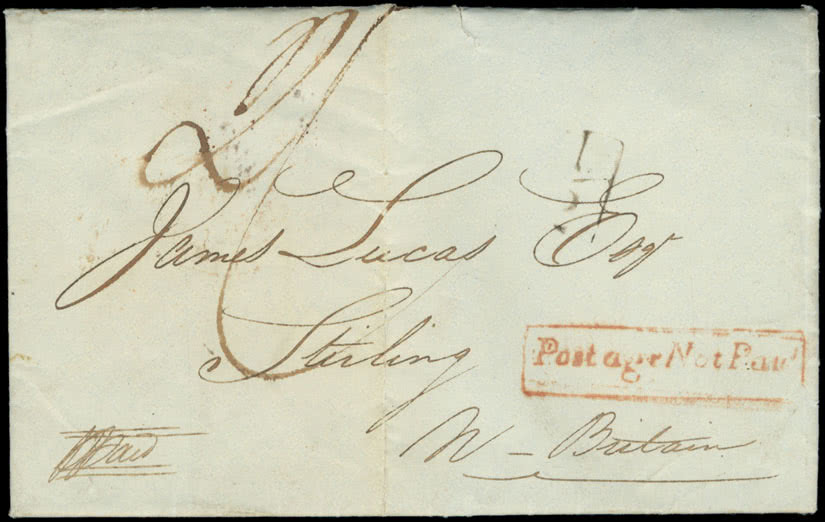 2/
1/2
James Lucas Esqr
Stirling
Postage Not Paid
N - Britain
Paid